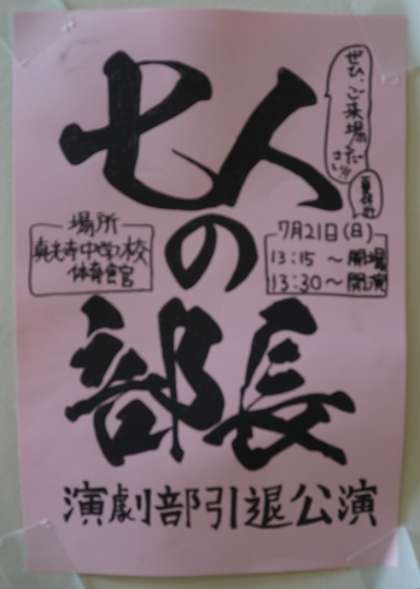 七人
の
部長
ぜひ、ご来場くだ
さい!!
場所
真光寺中学校
体育館
7月21日(日)
13:15〜開場
13:30〜開演
演劇部引退公演